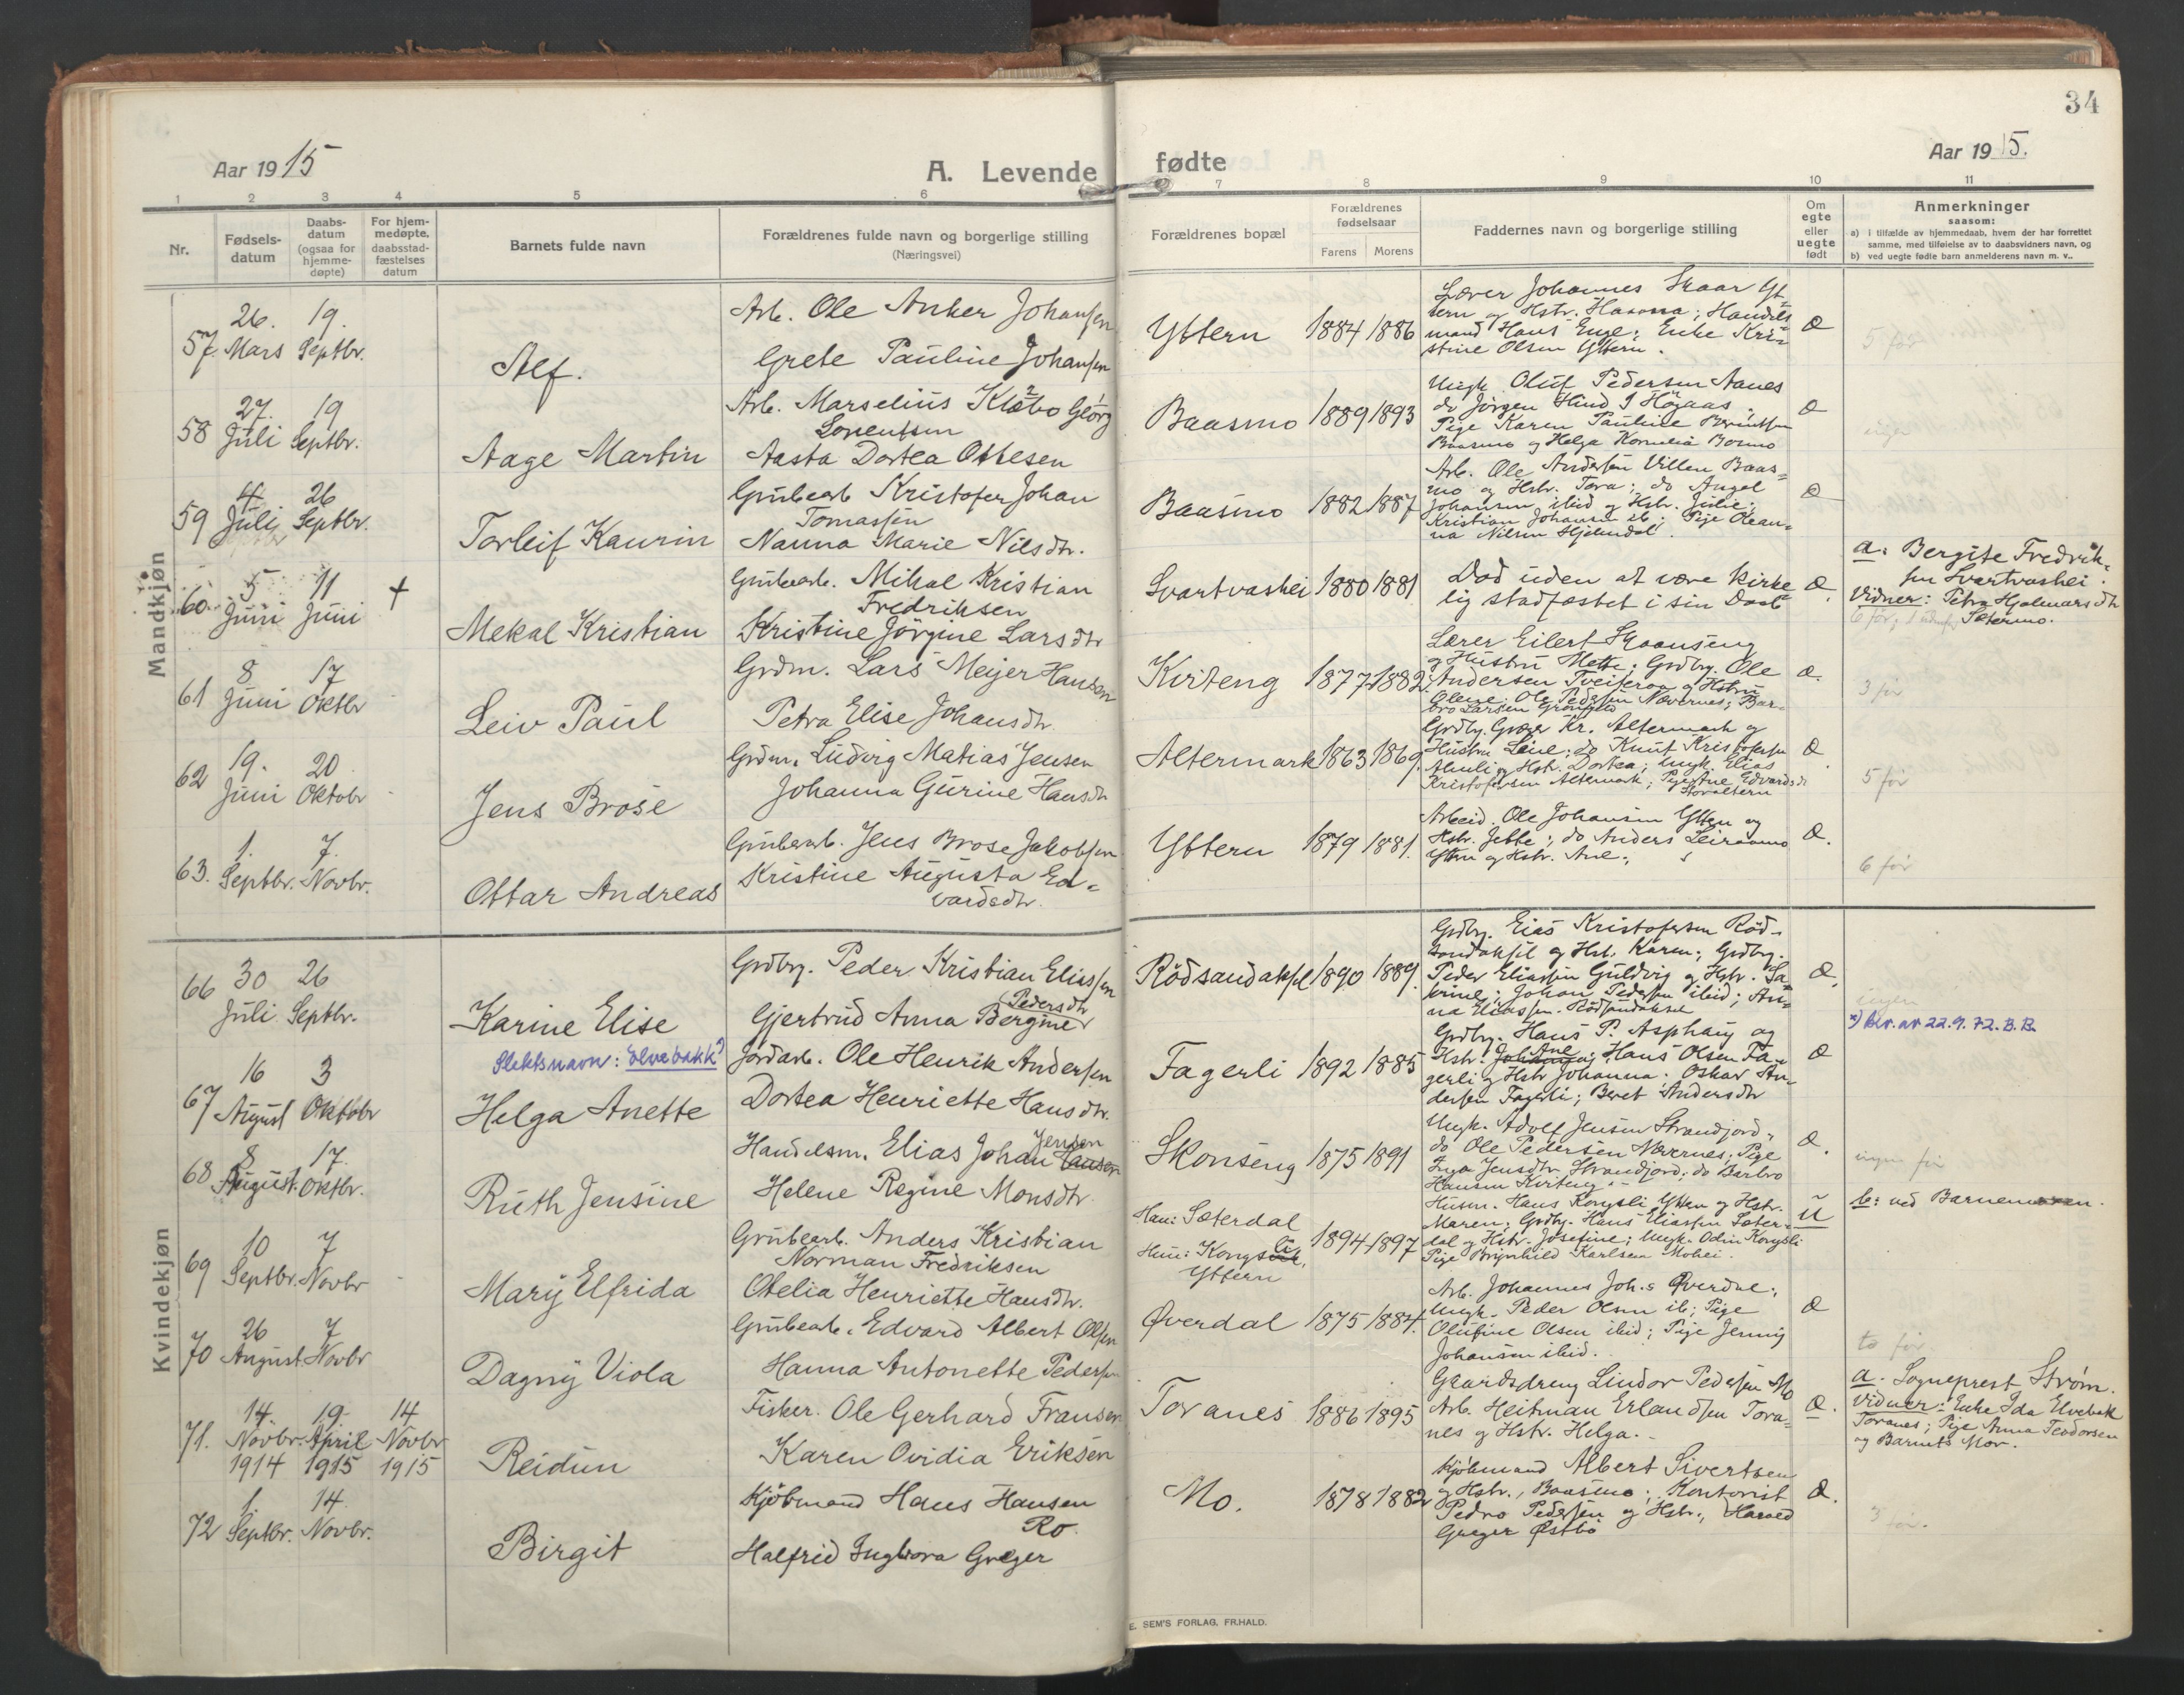 34
Aar 1915
A. Levende
fødte
Aar 1915.
1 2 3 4 5 6 7 8 9 10 11
Nr.
Fødsels-
datum
Daabs-
datum
(ogsaa for
hjemme-
døpte)
For hjem-
medøpte.
daabsstad-
fæstelses
datum
Barnets fulde navn
Forældrenes fulde navn og borgerlige stilling
(Næringsvei)
Forældrenes bopæl
Forældrenes
fødselsaar
Farens Morens
Faddernes navn og borgerlige stilling
Om
egte
eller
uegte
født
Anmerkninger
saasom:
a) i tilfælde av hjemmedaab, hvem der har forrettet
samme, med tilføielse av to daabsvidners navn, og
b) ved uegte fødte barn anmelderens navn m. v..
Mandkjøn
57. 26. Mars 19. Septbr.
Alf.
Arb. Ole Anker Johansen
Grete Pauline Johansen
Yttern 1884 1886
Lærer Johannes Skaar Yt-
tern og Hstr. ; Handels
mand Hans Enge; Enke Kri-
stine Olsen Yttern.
Æ
5 før
58 27. Juli 19 Septbr.
Aage Martin
Arb. Marselius Klæbo Georg
Lorentsen
Aasta Dortea Ottesen
Baasmo 1889 1893
Ungk. Oluf Pedersen Aanes
do Jørgen Hind Høgaas,
Pige Karen Pauline Berintsen
Baasmo og Helga Kornelia Bosmo
Æ
ingen
59 4 Juli 26 Septbr.
Torleif Kaurin
Grubearb Kristofer Johan
Tomassen
Nanna Marie Nilsdtr.
Baasmo 1882 1887
Arb. Ole Andersen Villen Baas-
mo og Hstr. Tora; do Angel
Johansen ibid og Hstr. Julie;
Kristian Johansen ib; Pige Olean-
na Nilsen Hjelmdal.
Æ
60. 5 Juni 11 Juni +
Mekal Kristian
Grubearb. Mikal Kristian
Fredriksen
Kristine Jørgine Larsdtr
Svartvashei 1880 1881
Død uden at være kirke
lig stadfæstet i sin Daab
Æ.
a. Bergite Fredrik-
sen Svartvashei.
Vidner: Petra Hjalmarsdtr
Sætermo.
61 8 Juni 17 Oktbr
Leiv Paul
Grdm. Lars Meijer Hansen
Petra Elise Johansdtr
Kviteng 1877 1882
Lærer Eilert Skaanseng
og Hustru Mette; Grdbr. Ole
Andersen Tveiteraa og Hstru
Olene; Ole Pedersen Nævernes; Bar-
bro Larsen Grønfjeld
Æ.
3 før
62 19. Juni 20 Oktobr
Jens Brose
Grdm. Ludvig Matias Jensen
Johanna Gurine Hansdtr
Altermark 1863 1869.
Grdbr. Græger Kr. Altermark og
Hustru Leine; do Knut Kristofersen
Almli og Hstr. Dortea; Ungk. Elias
Kristofersen Altermark; Pige Ane Edvardsdtr
Storaltern
Æ.
5 før
63. 1. Septbr. 7. Novbr.
Ottar Andreas
Grubearb. Jens Brose Jakobsen
Kristine Augusta Ed-
vardsdtr.
Yttern 1879 1881.
Arbeid. Ole Johansen Yttern og
Hstr. Jette; do Anders Leiraamo
Yttern og Hstr. Ane;
Æ.
6 før
Kvindekjøn
66 30 Juli 26 Septbr.
Karine Elise
Grdbr. Peder Kristian Eliassen
Gjertrud Anna Bergine Pedersdtr
Rødsandaksel 1890 1889.
Grdbr. Eias Kristofersen Rød-
sandaksel og Hst. Karen; Grdbr.
Peder Eliassen Guldvig og Hstr. Sa-
brine; Johan Pedersen ibid; An-
na Eliassen Rødsandaksel
Æ.
ingen
*) Bev. av 22.9.72. B.B.
Slektsnavn: Elvebakk
67 16 August 3 Oktobr
Helga Anette
Jordarb. Ole Henrik Andersen
Dortea Henriette Hansdtr.
Fagerli 1892 1885
Grdbr. Hans P. Asphaug og
Hstr. Ane; Hans Olsen Fa-
gerli og Hstr Johanna. Oskar An-
dersen Fagerli; Beret Andersdtr
Æ
68 8 August. 17. Oktbr.
Ruth Jensine
Handelsm. Elias Johan Hansen Jensen
Helene Regine Monsdtr.
Skonseng 1875 1891
Ungk. Adolf Jensen Strandjord,
do Ole Pedersen Nævernes; Pige
Inga Jensdtr Strandjord; do Barbro
Hansen Kviteng.
Æ.
ingen før
69 10 Septbr. 7 Novbr
Mary Elfrida
Grubearb. Anders Kristian
Norman Fredriksen
Otelia Henriette Hansdtr.
Han: Sæterdal
Hun: Kongsli,
Yttern
1894 1897
Husm. Hans Kongsli Yttern og Hstr.
Maren; Grdbr. Hans Eliassen Sæter-
dal og Hstr. Josefine; Ungk. Odin Kongsli
Pige Brynhild Karlsen Mohei.
U
b: ved Barnemoren.
70 26 August 7 Novbr
Dagny Viola
Grubearb. Edvard Albert Olsen
Hanna Antonette Pedersen
Øverdal 1875 1884.
Arb. Johannes Joh.s Øverdal;
Ungk. Peder Olsen ib; Pige
Olufine Olsen ibid; Pige Jenny
Johansen ibid.
Æ
to før.
71. 14 Novbr. 1914 19 April 1915 14 Novbr 1915
Reidun
Fisker. Ole Gerhard Fransen
Karen Ovidia Eriksen
Toranes 1886 1895
Gaardsdreng Lindor Pedersen Mo
Arb. Heitman Erlandsen Tora-
nes og Hstr. Helga.
Æ.
a. Sogneprest Strøm.
Vidner: Enke Ida Elvebak
Toranes; Pige Anna Teodorsen
og Barnets Mor.
72 1. Septbr. 14. Novbr.
Birgit
Kjøbmand Hans Hansen
Ro.
Halfrid Ingbora Græger
Mo. 1878 1882
Kjøbmand Albert Sivertsen
og Hstr., Baasmo; Kontorist
Pedro Pedersen og Hstr., Harald
Græger Østbø
Æ.
3 før.
E. SEM'S FORLAG, FR.HALD.